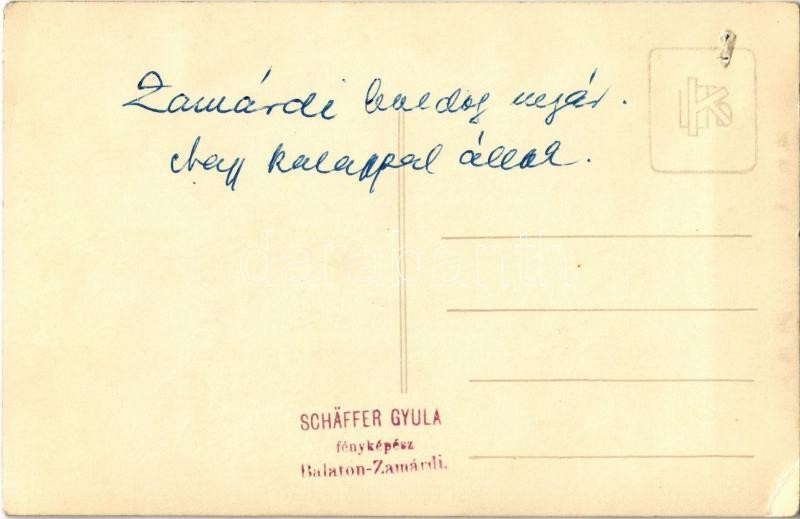 Zamárdi boldog nyár.
Nagy kalappal állok.
darabanth
SCHÄFFER GYULA
fényképész
Balaton-Zamárdi.